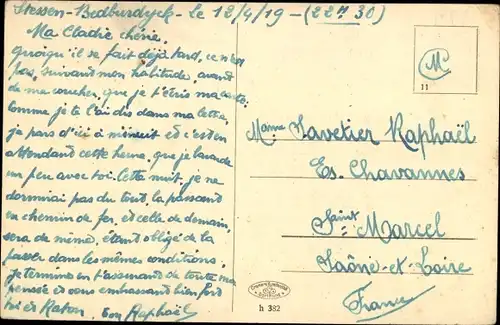 Stessen-Bedburdyck - Le 12/4/19 - (22H 30)
Ma Cladie chérie,
quoiqu'il se fait déja tard, ce n'est
pas, suivant mon habitude, avant
de me coucher, que je t'écris ma carte.
Comme je te l'ai dis dans ma lettre,
je pars d'ici à minuit et c'est en
attendant cette heure, que je bavarde
un peu avec toi. Cette nuit, je ne
dormirai pas du tout, la passant
en chemin de fer, et celle de demain,
sera de même, étant obligé de la
passer dans les mêmes conditions.
Je termine en t'assurant de toute ma
pensée et vous embrassant bien fort
toi et Raton. Ton Raphaël
M
11
Mame Lavetier Raphaël
Es. Chavannes
Saint-Marcel
Saône-et-Loire
France
h 382